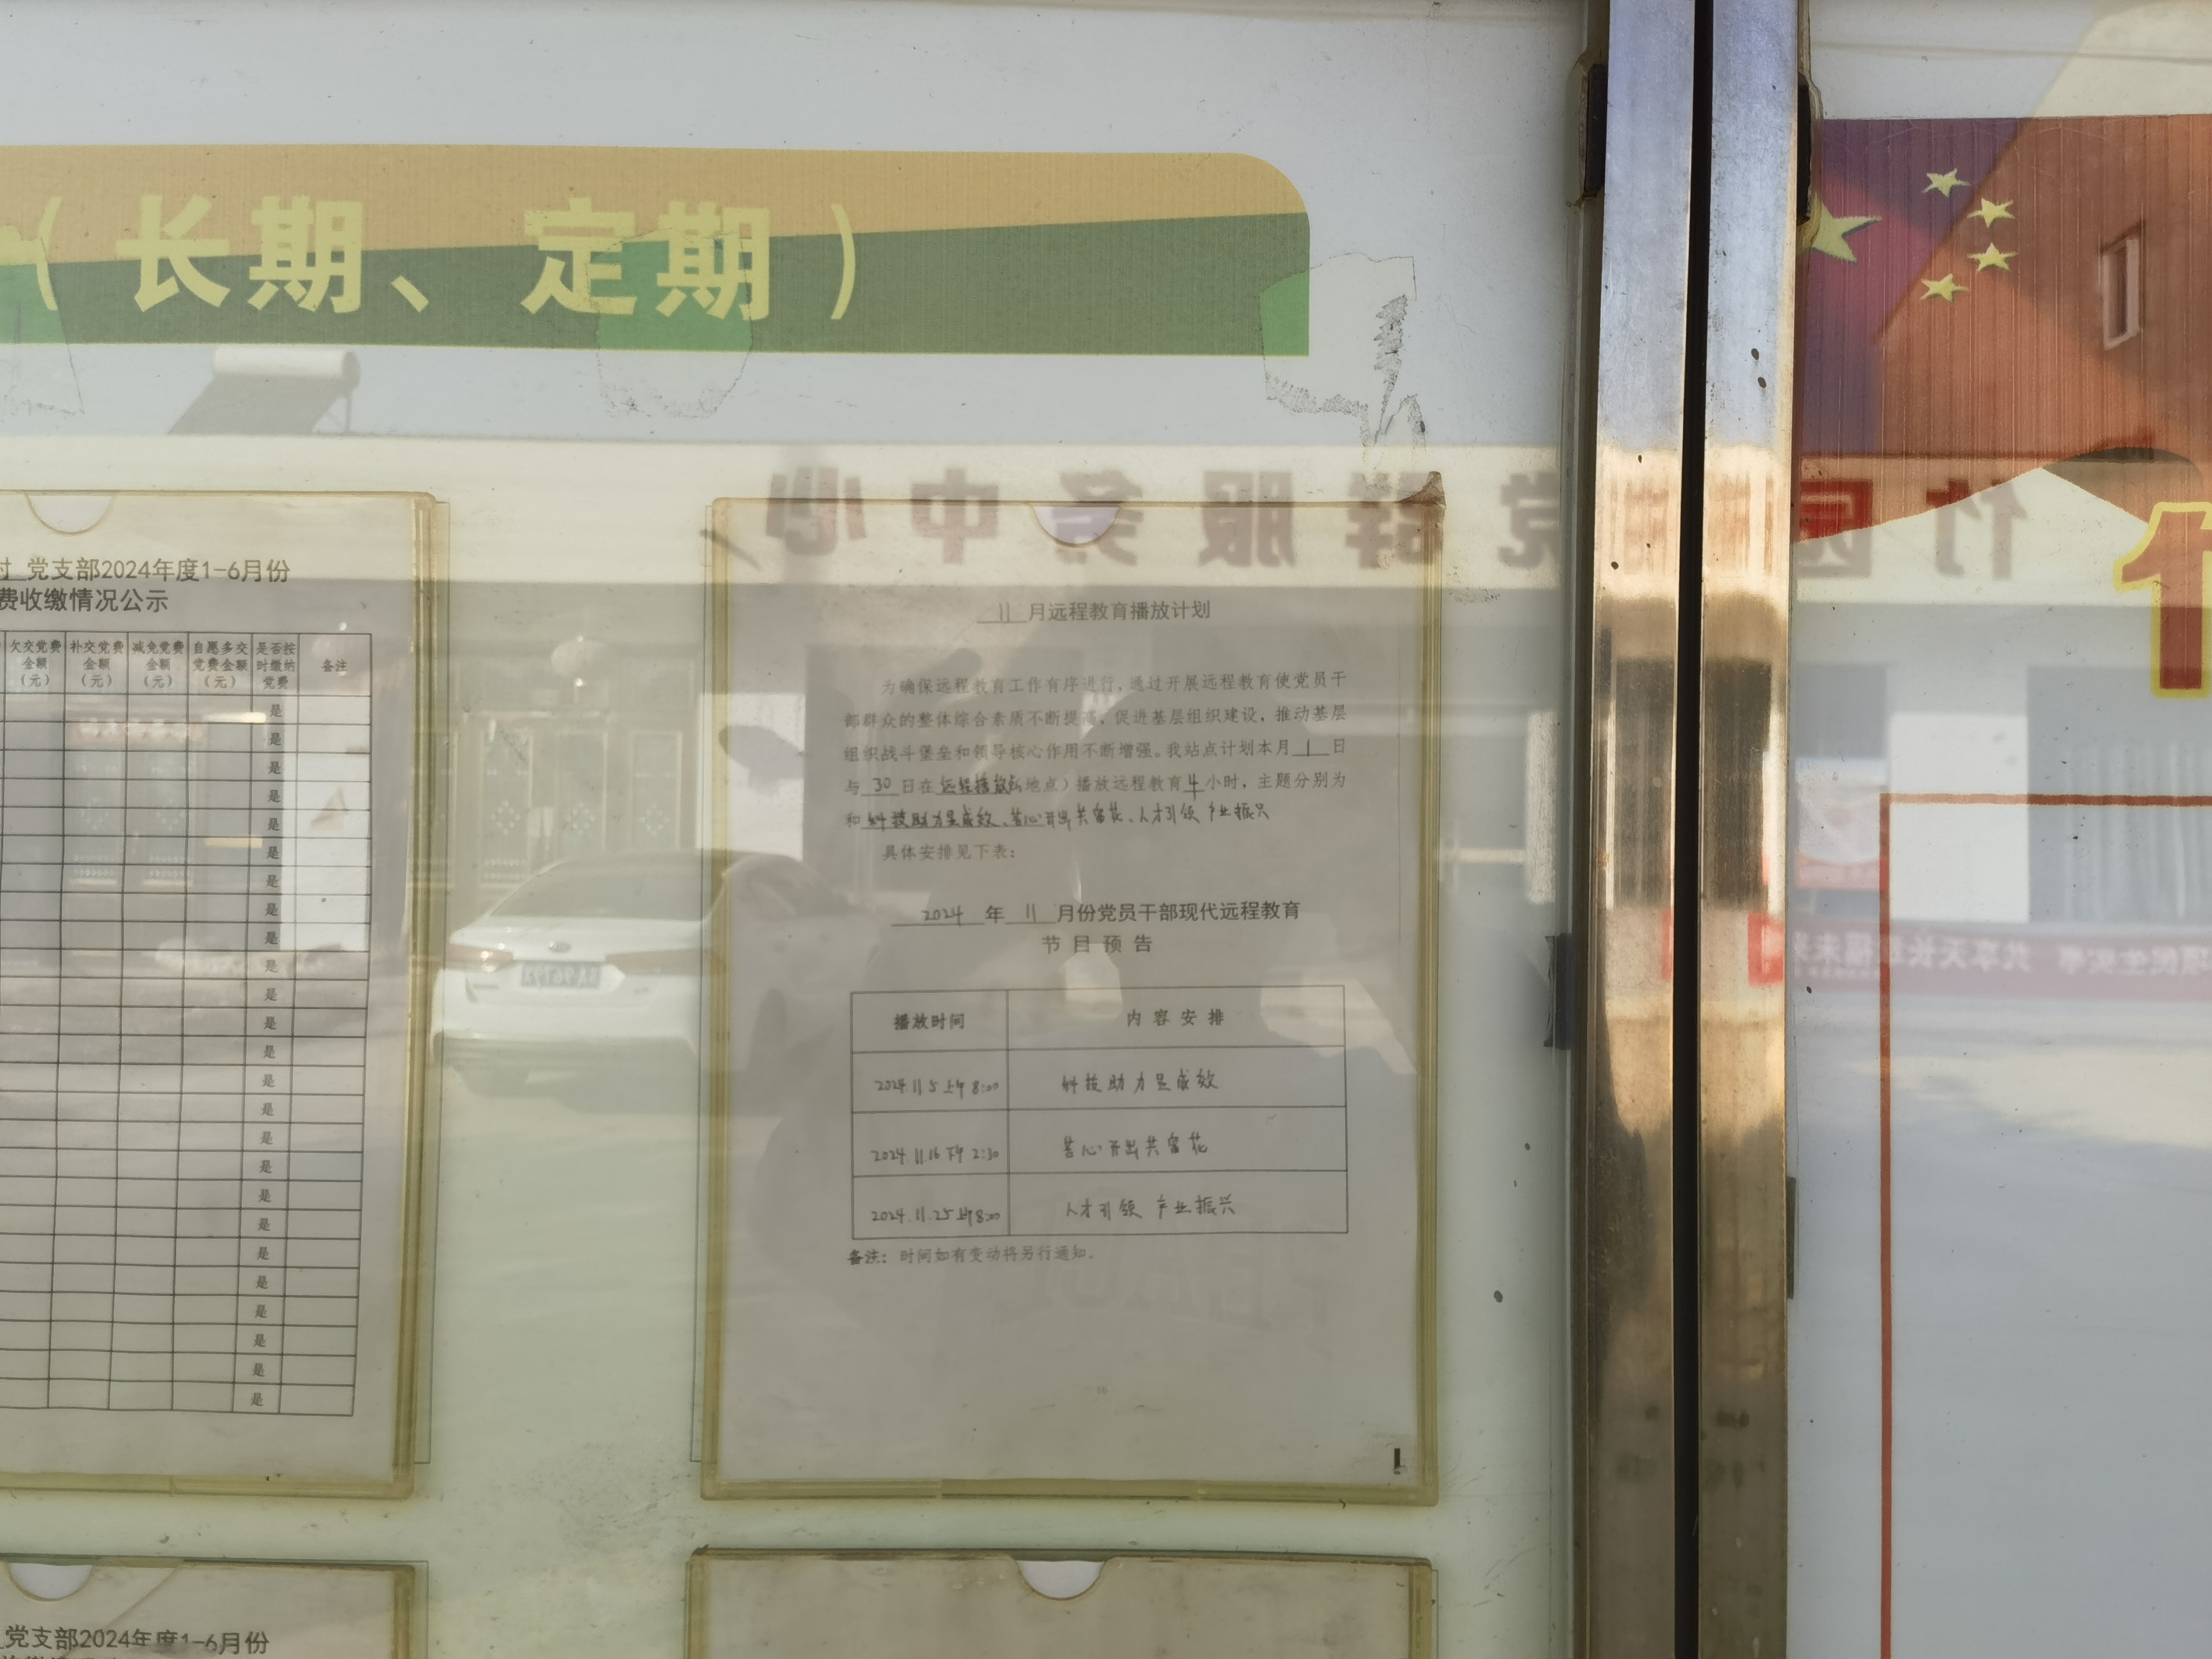 （长期、定期）
党支部2024年度1-6月份
费收缴情况公示
欠交党费金额（元） 补交党费金额（元） 减免党费金额（元） 自愿多交党费金额（元） 是否按时缴纳党费 备注
是
是
是
是
是
是
是
是
是
是
是
是
是
是
是
是
是
是
是
是
是
是
是
是
是
党支部2024年度1-6月份
竹园村党群服务中心
11月远程教育播放计划
为确保远程教育工作有序进行，通过开展远程教育使党员干
部群众的整体综合素质不断提高，促进基层组织建设，推动基层
组织战斗堡垒和领导核心作用不断增强。我站点计划本月1日
与30日在远程播放（地点）播放远程教育4小时，主题分别为
和科技助力显成效、苦心开出共富花、人才引领 产业振兴
具体安排见下表：
2024年11月份党员干部现代远程教育
节目预告
播放时间 内容安排
2024.11.5上午8:00 科技助力显成效
2024.11.16下午2:30 苦心开出共富花
2024.11.25上午8:00 人才引领 产业振兴
备注：时间如有变动将另行通知。